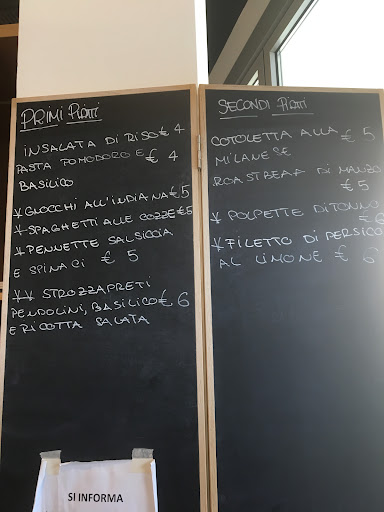 PRIMI PIATTI
INSALATA DI RISO € 4
PASTA POMODORO E € 4
BASILICO
* GNOCCHI ALL'INDIANA €5
* SPAGHETTI ALLE COZZE €5
* PENNETTE SALSICCIA
E SPINACI € 5
** STROZZAPRETI
PENDOLINI, BASILICO € 6
E RICOTTA SALATA
SI INFORMA
SECONDI PIATTI
COTOLETTA ALLA € 5
MILANESE
ROASTBEAF DI MANZO
€ 5
* POLPETTE DI TONNO
€ 6
* FILETTO DI PERSICO
AL LIMONE € 6